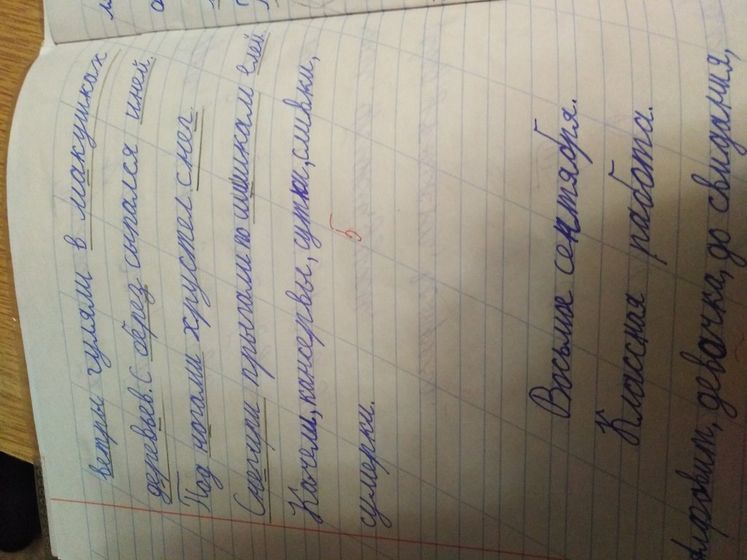 ветры гуляли в макушках
деревьев. С берёз сыпался иней.
Под ногами хрустел снег.
Снегири прыгали по шишкам елей
Качели, консервы, сутки, сливки,
сумерки.
5
Восьмое сентября.
Классная работа.
девочка, до свидания,